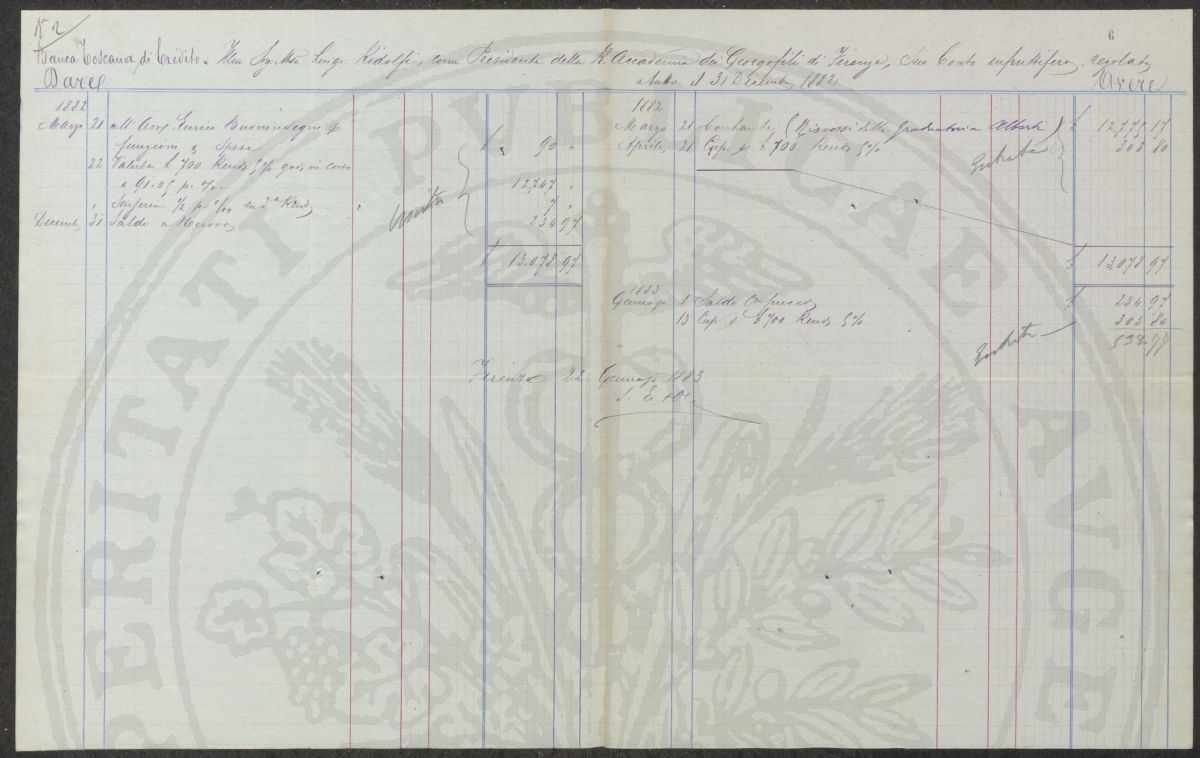 N 2
6
Banca Toscana di Credito. Illmo Sig. Mse Luigi Ridolfi, come Presidente della R. Accademia dei Georgofili di Firenze, Suo Conto infruttifero, regolato
Dare
a tutto il 31 Dicembre 1882
Avere
1882
Marzo 21 all' Avv. Buoninsegni p
funzioni e Spese £ 90 "
22 Valuta £ 700 Rend. 5% god. in corso
a 91.05 p. %. 12,747 "
" Senseria ½ p. %00 su da Rend. 7 "
Dicembre 31 Saldo a Nuovo 234 97
Uscita
£ 13,078 97
1882
Marzo 21 Contanti (Riscossi dalla Graduatoria Alberti) £ 12,775 17
Aprile 21 Cup. s £ 700 Rend. 5% 303 80
Entrata
£ 13,078 97
1883
Gennaio 1 Saldo £ 234 97
13 Cup. s £ 700 Rend. 5% 303 80
Entrata
538.77
Firenze 22 Gennaio 1883
S. E. & O.
PERITATI PUBLICAE AVGE